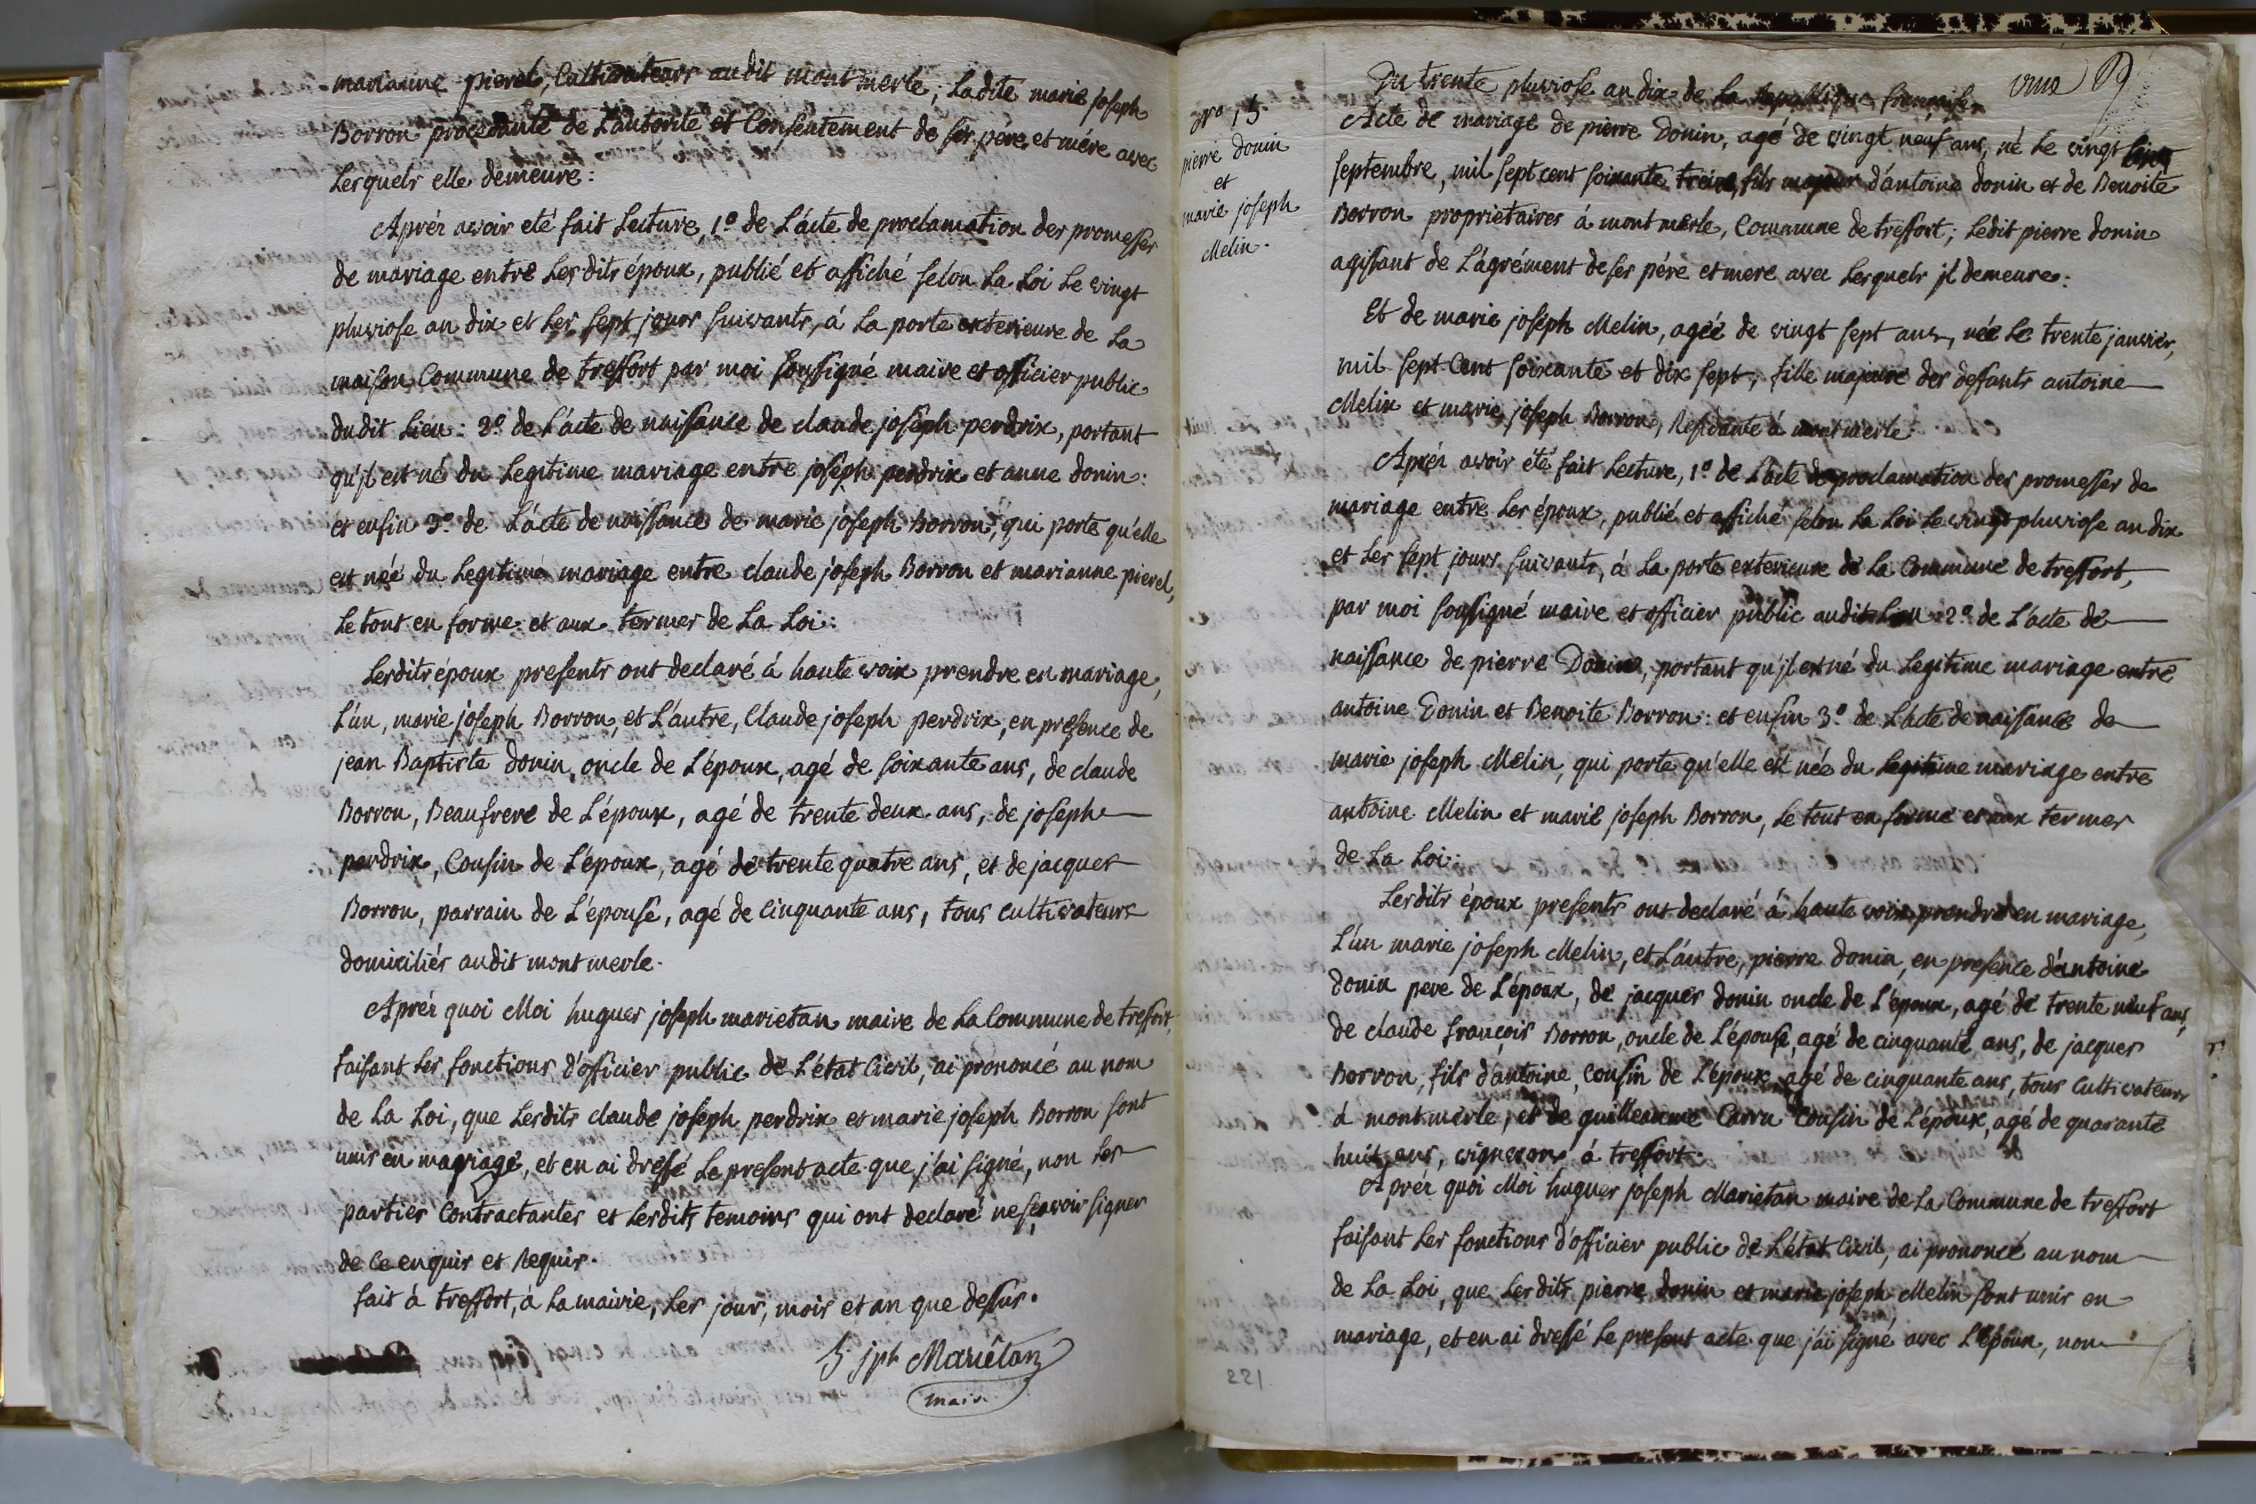 marianne pierel, Cultivateurs audit mont merle; Ladite marie joseph
Borron procedante de L'autorité et Consentement de ses pére et mére avec
Lesquels elle demeure:
Aprés avoir eté fait Lecture, 1º de L'acte de proclamation des promesses
de mariage entre Lesdits époux, publié et affiché selon La Loi Le vingt
pluviose an dix et Les sept jours suivants, á La porte exterieure de La
maison Commune de treffort par moi soussigné maire et officier public
dudit Lieu: 2º de L'acte de naissance de claude joseph perdrix, portant
qu'il est né du Legitime mariage entre joseph perdrix et anne donin:
et enfin 3º de L'acte de naissance de marie joseph Borron, qui porte qu'elle
est née du Legitime mariage entre claude joseph Borron et marianne pierel,
Le tout en forme et aux termes de La Loi:
Lesdits époux presents ont declaré á haute voix prendre en mariage,
L'un, marie joseph Borron, et L'autre, Claude joseph perdrix, en presence de
jean Baptiste donin, oncle de L'époux, agé de soixante ans, de claude
Borron, Beaufrere de L'époux, agé de trente deux ans, de joseph
perdrix, Cousin de L'époux, agé de trente quatre ans, et de jacques
Borron, parrain de L'épouse, agé de Cinquante ans, tous cultivateurs
domiciliés audit mont merle.
Aprés quoi Moi hugues joseph marietan maire de La Commune de treffort,
faisant Les fonctions d'officier public de L'état Civil, ai prononcé au nom
de La Loi, que Lesdits claude joseph perdrix et marie joseph Borron sont
unis en mariage, et en ai dressé Le present acte que j'ai signé, non Les
parties Contractantes et Lesdits temoins qui ont declaré ne sçavoir signer
de Ce enquis et Requis.
fait á treffort, á La mairie, Les jour, mois et an que dessus.
h jph Mariétan
maire
nro 15.
pierre donin
et
marie joseph
Melin.
Du trente pluviose an dix de La Republique francaise
Acte de mariage de pierre Donin, agé de vingt neuf ans, né Le vingt cinq
septembre, mil sept cent soixante treize, fils majeur d'antoine donin et de Benoite
Borron proprietaires á mont merle, Commune de treffort; Ledit pierre donin
agissant de L'agrément de ses pére et mere avec Lesquels il demeure:
Et de marie joseph Melin, agée de vingt sept ans, née Le trente janvier,
mil sept Cent soixante et dix sept, fille majeure des deffunts antoine
Melin et marie joseph Borron, Residante á mont merle
Aprés avoir été fait Lecture, 1º de L'acte de proclamation des promesses de
mariage entre Les époux, publié et affiché selon La Loi Le vingt pluviose an dix
et Les sept jours suivants, á La porte exterieure de La Commune de treffort,
par moi soussigné maire et officier public audit Lieu 2º de L'acte de
naissance de pierre Donin, portant qu'il est né du Legitime mariage entre
antoine Donin et Benoite Borron: et enfin 3º de L'acte de naissance de
marie joseph Melin, qui porte qu'elle est née du Legitime mariage entre
antoine Melin et marie joseph Borron, Le tout en forme et aux termes
de La Loi:
Lesdits époux presents ont declaré á haute voix prendre en mariage,
L'un marie joseph Melin, et L'autre, pierre donin, en presence d'antoine
donin pere de L'époux, de jacques donin oncle de L'époux, agé de trente neuf ans,
de claude françois Borron, oncle de L'épouse, agé de cinquante ans, de jacques
Borron, fils d'antoine, cousin de L'époux, agé de cinquante ans, tous Cultivateurs
á mont merle, et de guilleaume Carru Cousin de L'époux, agé de quarante
huit ans, vigneron á treffort.
Aprés quoi Moi hugues joseph Marietan maire de La Commune de treffort
faisant Les fonctions d'officier public de L'état Civil, ai prononcé au nom
de La Loi, que Lesdits pierre donin et marie joseph Melin sont unis en
mariage, et en ai dressé Le present acte que j'ai signé avec L'époux, non
221